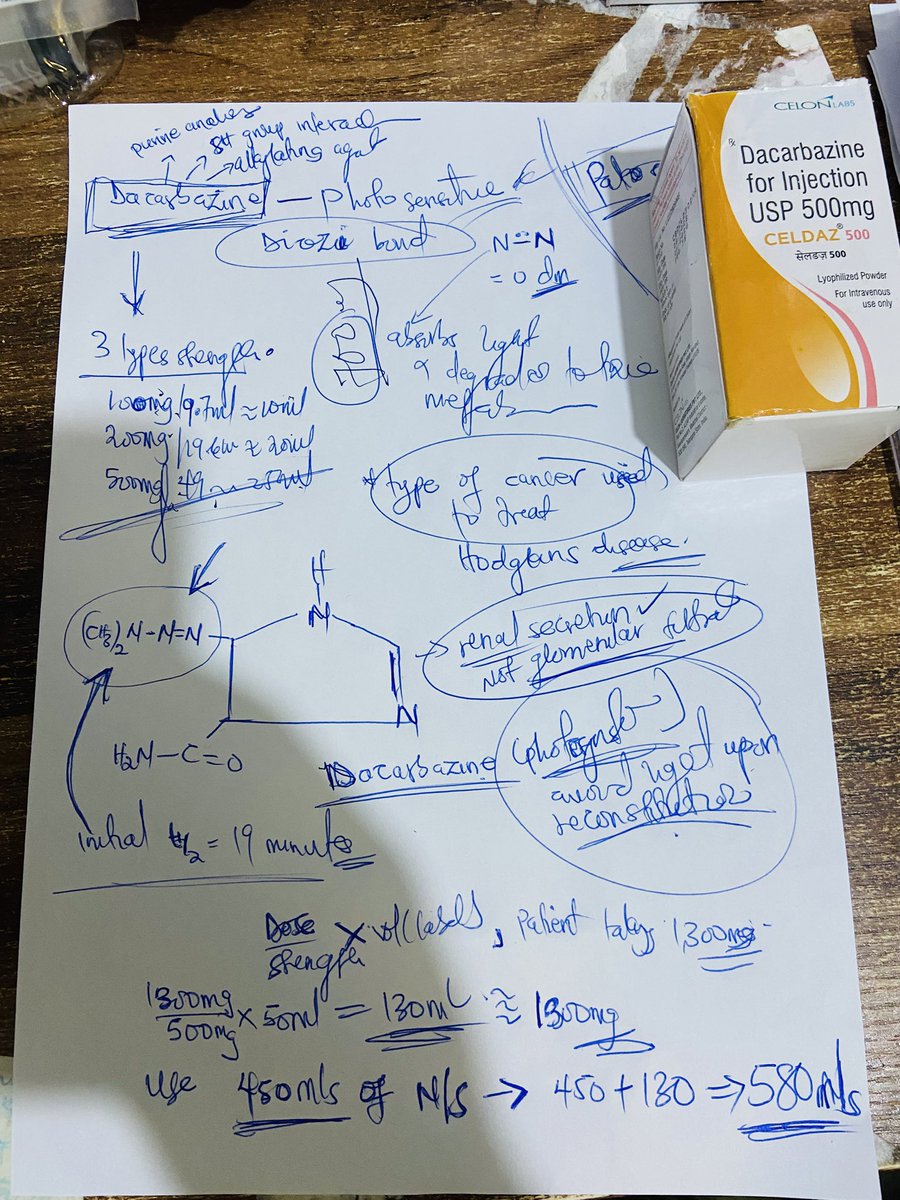 purine analog
SH group interac
alkylating agent
Dacarbazine — photosensitive
bond
N=N
= 0
absorbs light
& degrades to
3 types strength.
100mg/9.7ml ≈ 10ml
200mg/19.6ml ≈ 20ml
500mg
* type of cancer used
to treat
Hodgkins disease.
H
N
(CH3)2 N-N=N
N
H2N-C=O
renal secretion ✓
Not glomerular
Dacarbazine
avoid light upon
reconstitution
initial t1/2 = 19 minutes
Dose
strength
× vol, Patient takes 1,300mg
1300mg
500mg
× 50ml = 130ml ≈ 1300mg
use 450mls of N/s → 450+130 ⇒ 580mls
CELON LABS
Rx
Dacarbazine
for Injection
USP 500mg
CELDAZ® 500
सेलडज़ 500
Lyophilized Powder
For Intravenous
use only